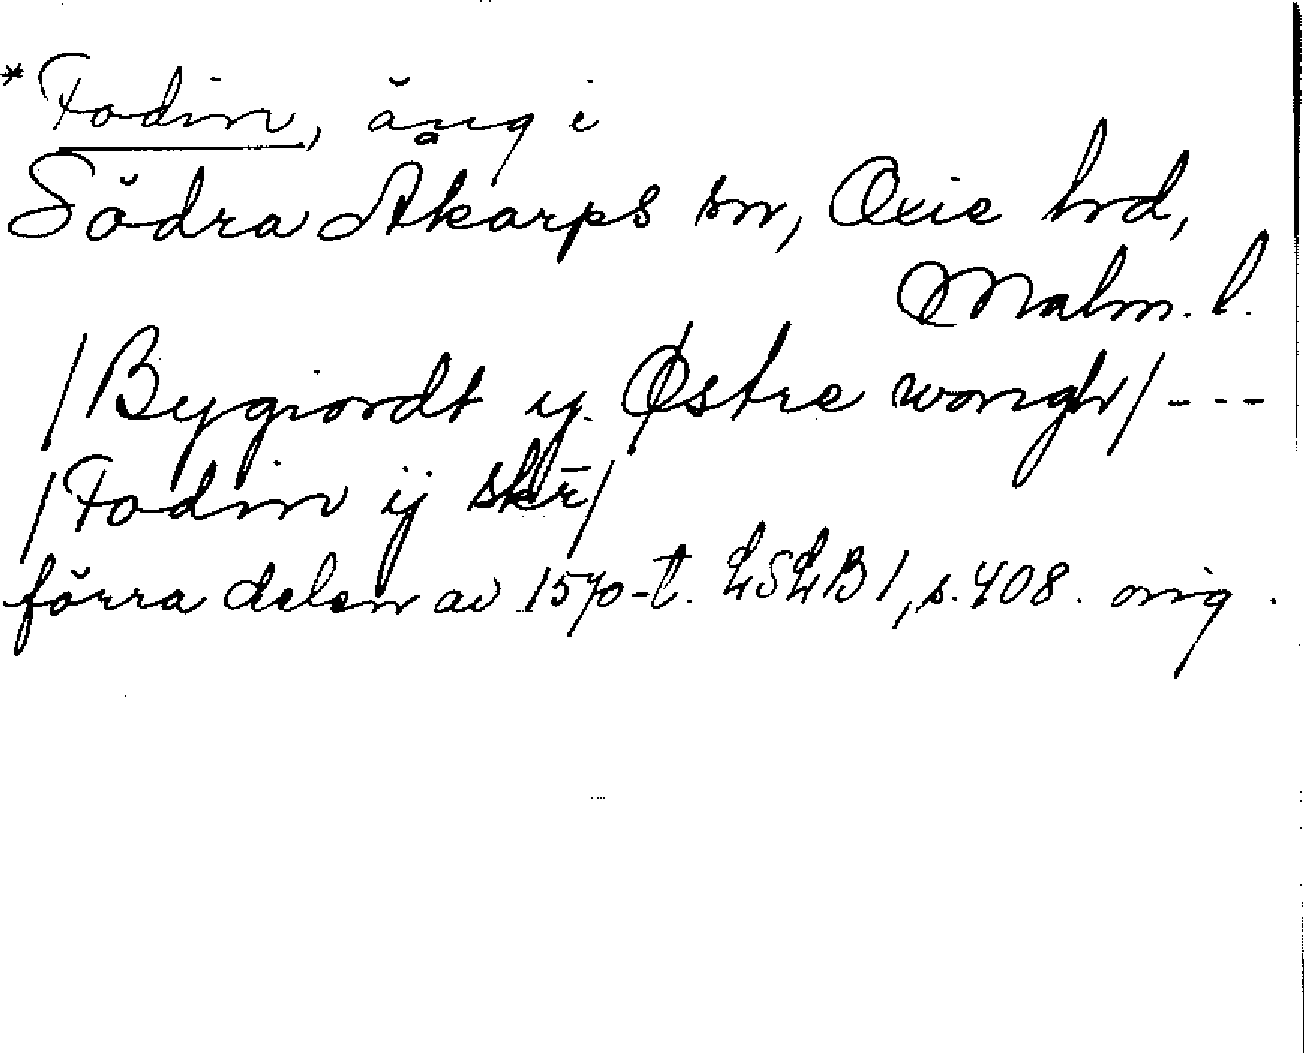 *Fodim, äng i
Södra Åkarps sn, Oxie hd,
Malm. l.
/Bygiordt ij Østre wongh/ ---
/Fodim ij skr̄/
förra delen av 1570-t. LSLB 1, s. 408. orig.